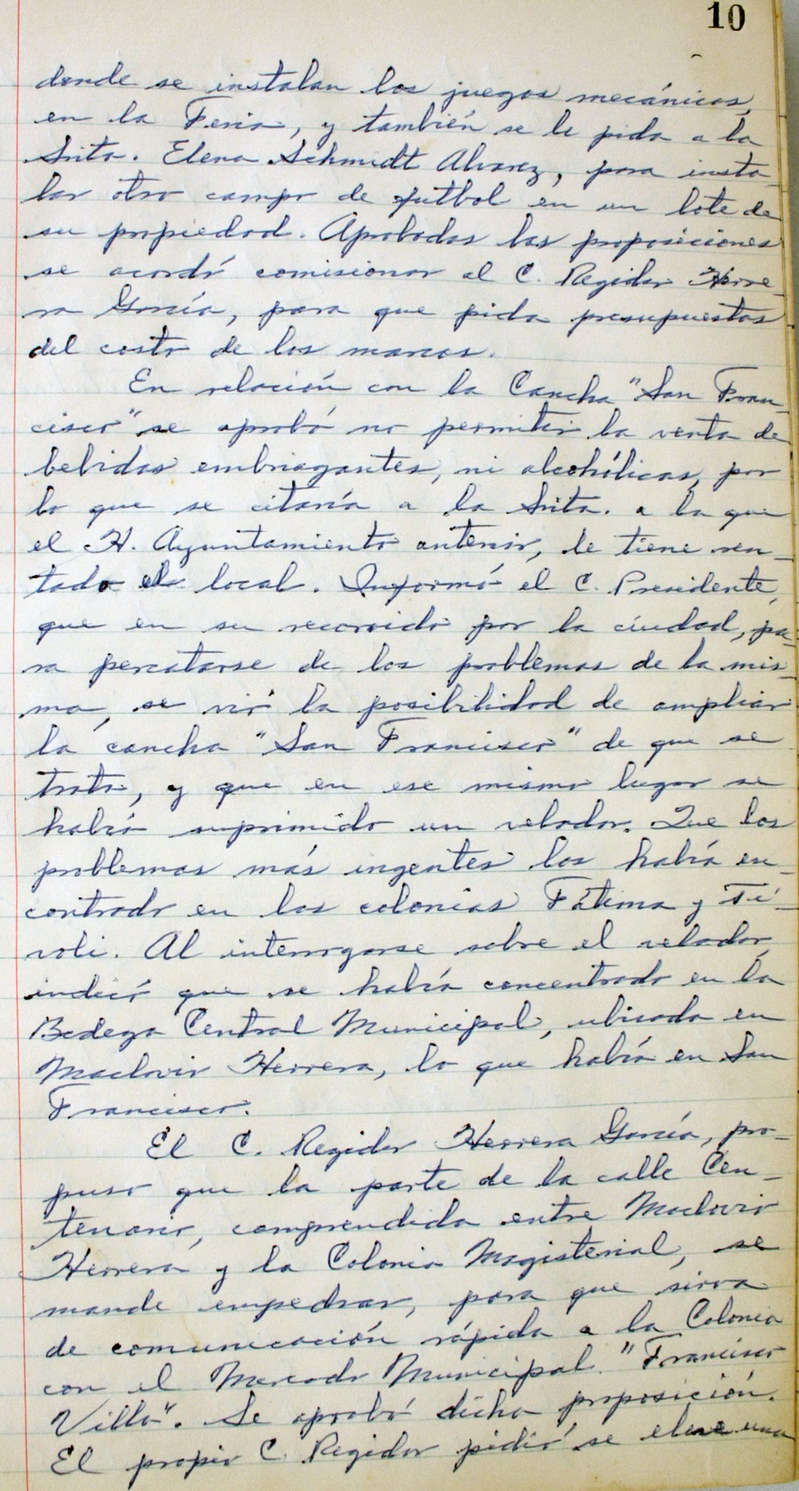 10
donde se instalan los juegos mecánicos,
en la Feria, y también se le pida a la
Srita. Elena Schmidt Alvarez, para insta-
lar otro campo de futbol en un lote de
su propiedad. Aprobadas las proposiciones
se acordó comisionar al C. Regidor Herre-
ra García, para que pida presupuestos
del costo de los marcos.
En relación con la Cancha "San Fran-
cisco" se aprobó no permitir la venta de
bebidas embriagantes, ni alcohólicas, por
lo que se citaría a la Srita. a la que
el H. Ayuntamiento anterior, le tiene ren-
tado el local. Informó el C. Presidente,
que en su recorrido por la ciudad, pa-
ra percatarse de los problemas de la mis-
ma, se vió la posibilidad de ampliar
la cancha "San Francisco" de que se
trata, y que en ese mismo lugar se
había suprimido un velador. Que los
problemas más ingentes los había en-
contrado en las colonias Fátima y Tí-
voli. Al interrogarse sobre el velador,
indicó que se había concentrado en la
Bodega Central Municipal, ubicada en
Maclovio Herrera, lo que había en San
Francisco.
El C. Regidor Herrera García, pro-
puso que la parte de la calle Cen-
tenario, comprendida entre Maclovio
Herrera y la Colonia Magisterial, se
mande empedrar, para que sirva
de comunicación rápida a la Colonia
con el Mercado Municipal "Francisco
Villa". Se aprobó dicha proposición.
El propio C. Regidor pidió se eleve una